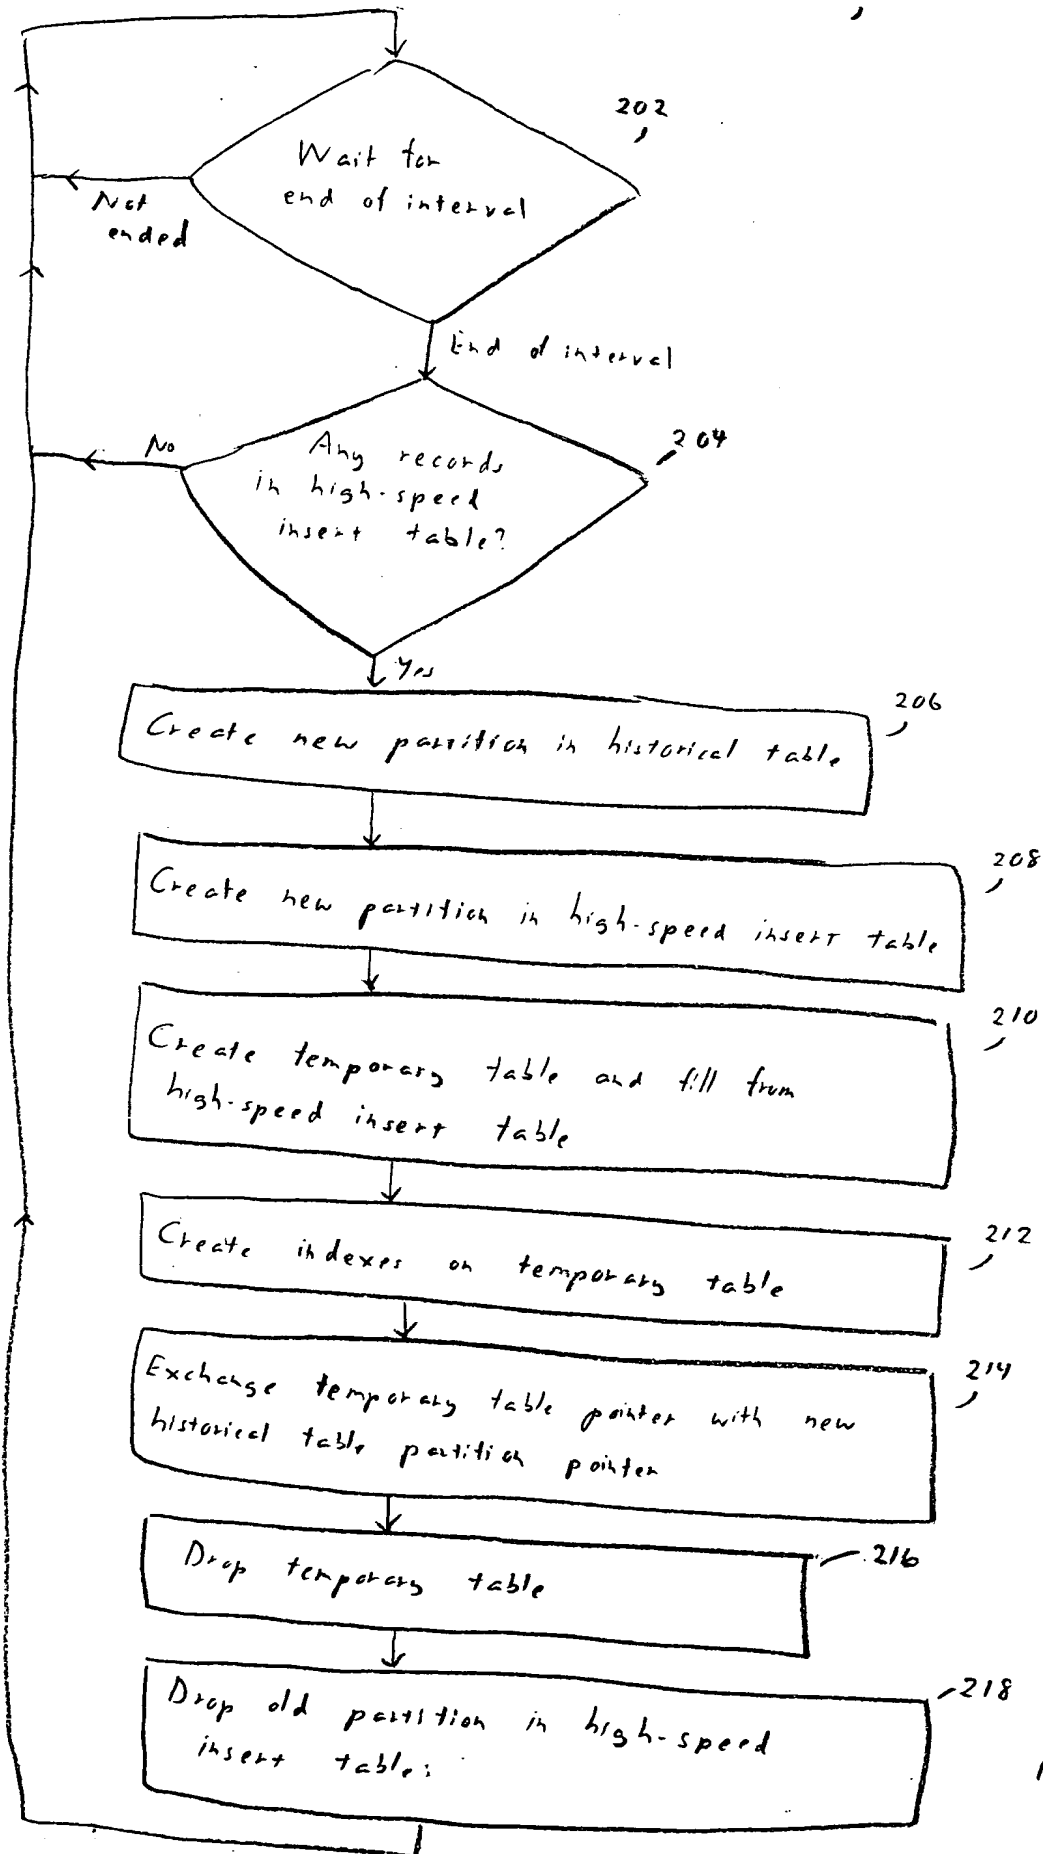 202
Wait for
end of interval
Not
ended
End of interval
204
No
Any records
in high-speed
insert table?
Yes
206
Create new partition in historical table
208
Create new partition in high-speed insert table
210
Create temporary table and fill from
high-speed insert table
212
Create indexes on temporary table
214
Exchange temporary table pointer with new
historical table partition pointer
216
Drop temporary table
218
Drop old partition in high-speed
insert table: